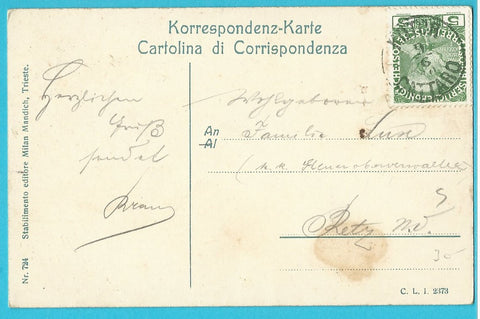 Korrespondenz-Karte
Cartolina di Corrispondenza
Herzlichen
Gruß
sendet
Wohlgeboren
An
Al
Familie
k. k. Steueroberverwalter
Retz N.Ö.
30
5
5
Nr. 724 Stabilimento editore Milan Mandich, Trieste.
C. L. i. 2373